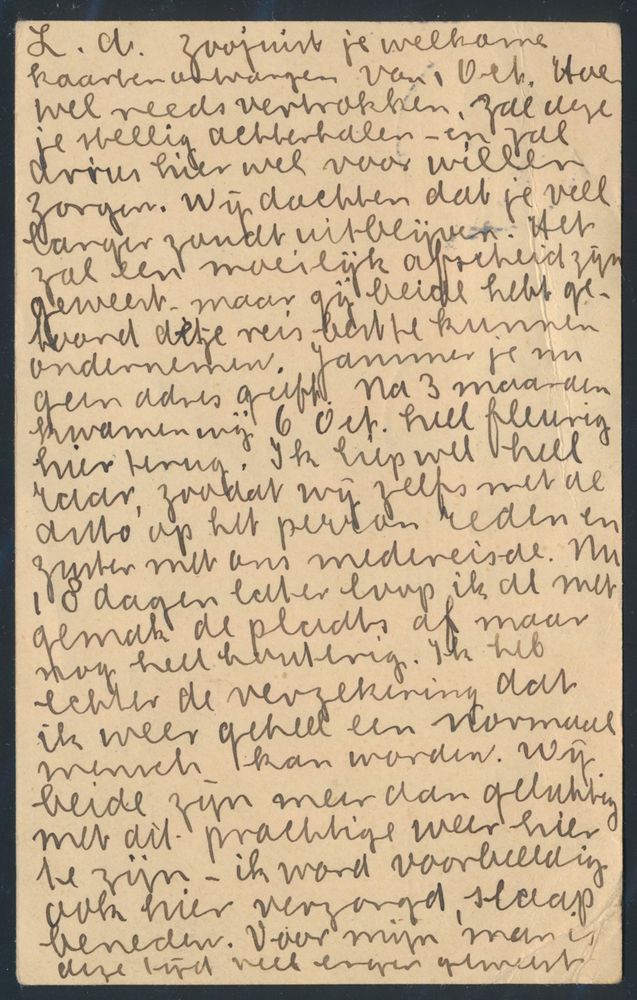 L. d. zoojuist je welkome
kaarten ontvangen van 1 Oct. Hoe
wel reeds vertrokken, zal deze
je stellig achterhalen - en zal
hier wel voor willen
zorgen. Wij dachten dat je veel
langer zoudt uitblijven. Het
zal een moeilijk afscheid zijn
geweest - maar gij beide hebt ge-
hoord deze reis best te kunnen
ondernemen. Jammer je nu
geen adres geeft. Na 3 maanden
kwamen wij 6 Oct. heel fleurig
hier terug. Ik liep wel heel
raar, zoodat wij zelfs met de
auto op het perron reden en
zuster met ons medereisde. Nu
18 dagen later loop ik al met
gemak de plaats af maar
nog heel houterig. Ik heb
echter de verzekering dat
ik weer geheel een normaal
mensch kan worden. Wij
beide zijn meer dan gelukkig
met dit prachtige weer hier
te zijn - ik word voorbeeldig
ook hier verzorgd, slaap
beneden. Voor mijn man is
deze tijd veel erger geweest